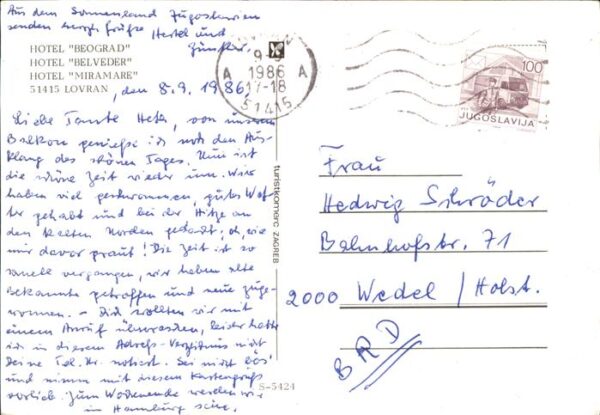 Aus dem Sonnenland Jugoslawien
senden herzl. Grüße Hertel und
HOTEL "BEOGRAD"
HOTEL "BELVEDER"
HOTEL "MIRAMARE"
51415 LOVRAN, den 8.9.1986
Liebe Tante Hete, von unserem
Balkon genieße ich noch den Aus-
klang des schönen Tages. Nun ist
die schöne Zeit wieder um. Wir
haben viel geschwommen, gutes Wet-
ter gehabt und bei der Hitze an
den kalten Norden gedacht; oh, wie
mir davor graut! Die Zeit ist so
schnell vergangen, wir haben alte
Bekannte getroffen und neue zuge-
wonnen. - Dich wollten wir mit
einem Anruf überraschen, leider hatte
ich in diesem Adreß-Verzeichnis nicht
Deine Tel.Nr. notiert. Sei nicht bös'
und nimm mit diesem Kartengruß
vorlieb. Zum Wochenende werden wir
in Hamburg sein.
turistkomerc ZAGREB
S-5424
9-9
A 1986 A
17-18
51415
100
JUGOSLAVIJA
Frau
Hedwig Schröder
Bahnhofstr. 71
2000 Wedel / Holst.
BRD